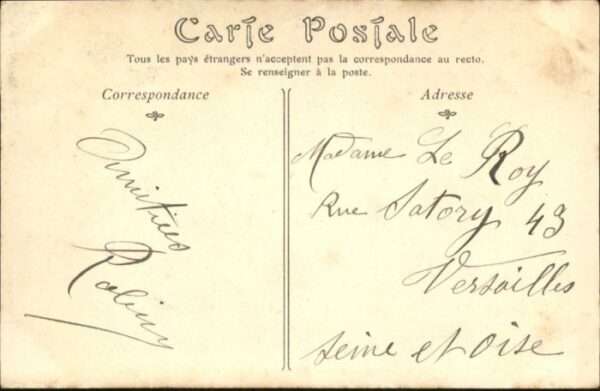 Carte Postale
Tous les pays étrangers n'acceptent pas la correspondance au recto.
Se renseigner à la poste.
Correspondance
Amitiés
Adresse
Madame Le Roy
Rue Satory 43
Versailles
Seine et Oise